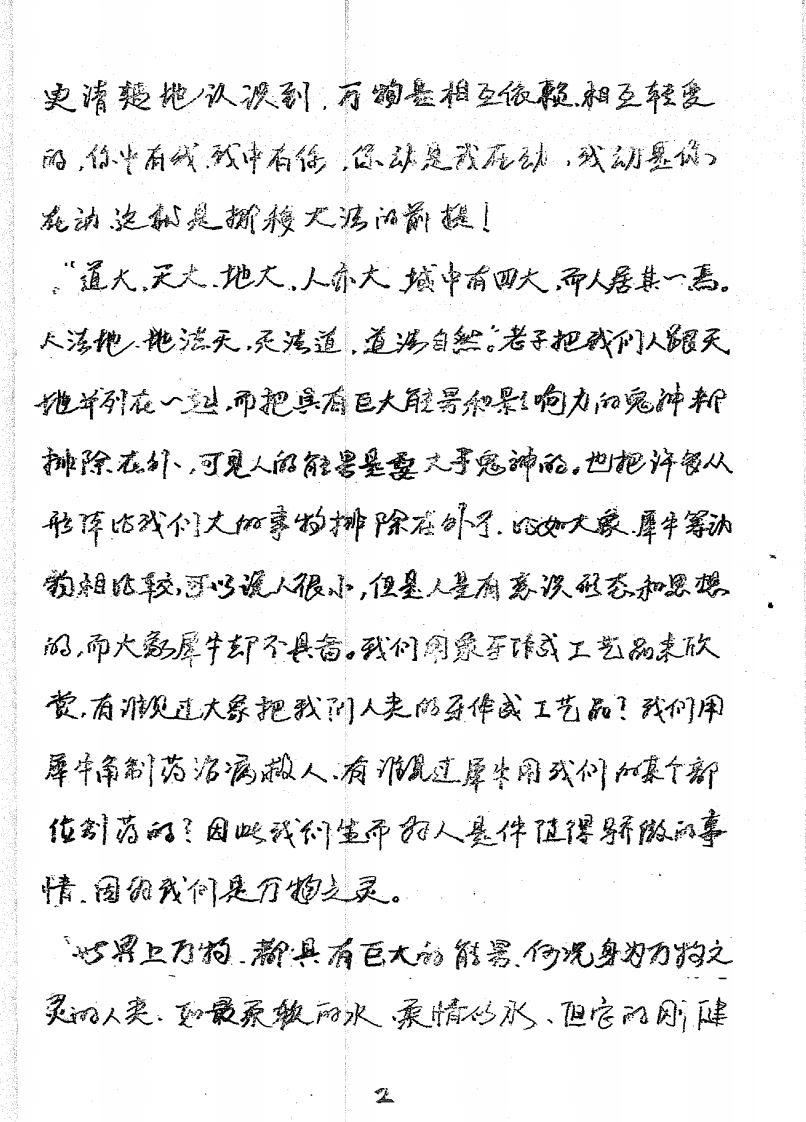 更清楚地认识到，万物是相互依赖、相互转变
的，你中有我，我中有你，你动是我在动，我动是你
在动，这就是挪移大法的前提！
“道大、天大、地大、人亦大，域中有四大，而人居其一焉。
人法地、地法天，天法道，道法自然。”老子把我们人跟天
地并列在一起，而把具有巨大能量和影响力的鬼神都
排除在外，可见人的能量是要大于鬼神的。也把许多从
形体比我们大的事物排除在外了，比如大象、犀牛等动
物相比较，可以说人很小，但是人是有意识形态和思想
的，而大象犀牛却不具备。我们用象牙作成工艺品来欣
赏，有谁见过大象把我们人类的牙作成工艺品？我们用
犀牛角制药治病救人，有谁见过犀牛用我们的某个部
位制药的？因此我们生而为人是件值得骄傲的事
情，因为我们是万物之灵。
世界上万物，都具有巨大的能量，何况身为万物之
灵的人类，如最柔软的水，柔情的水，但它的刚健
2